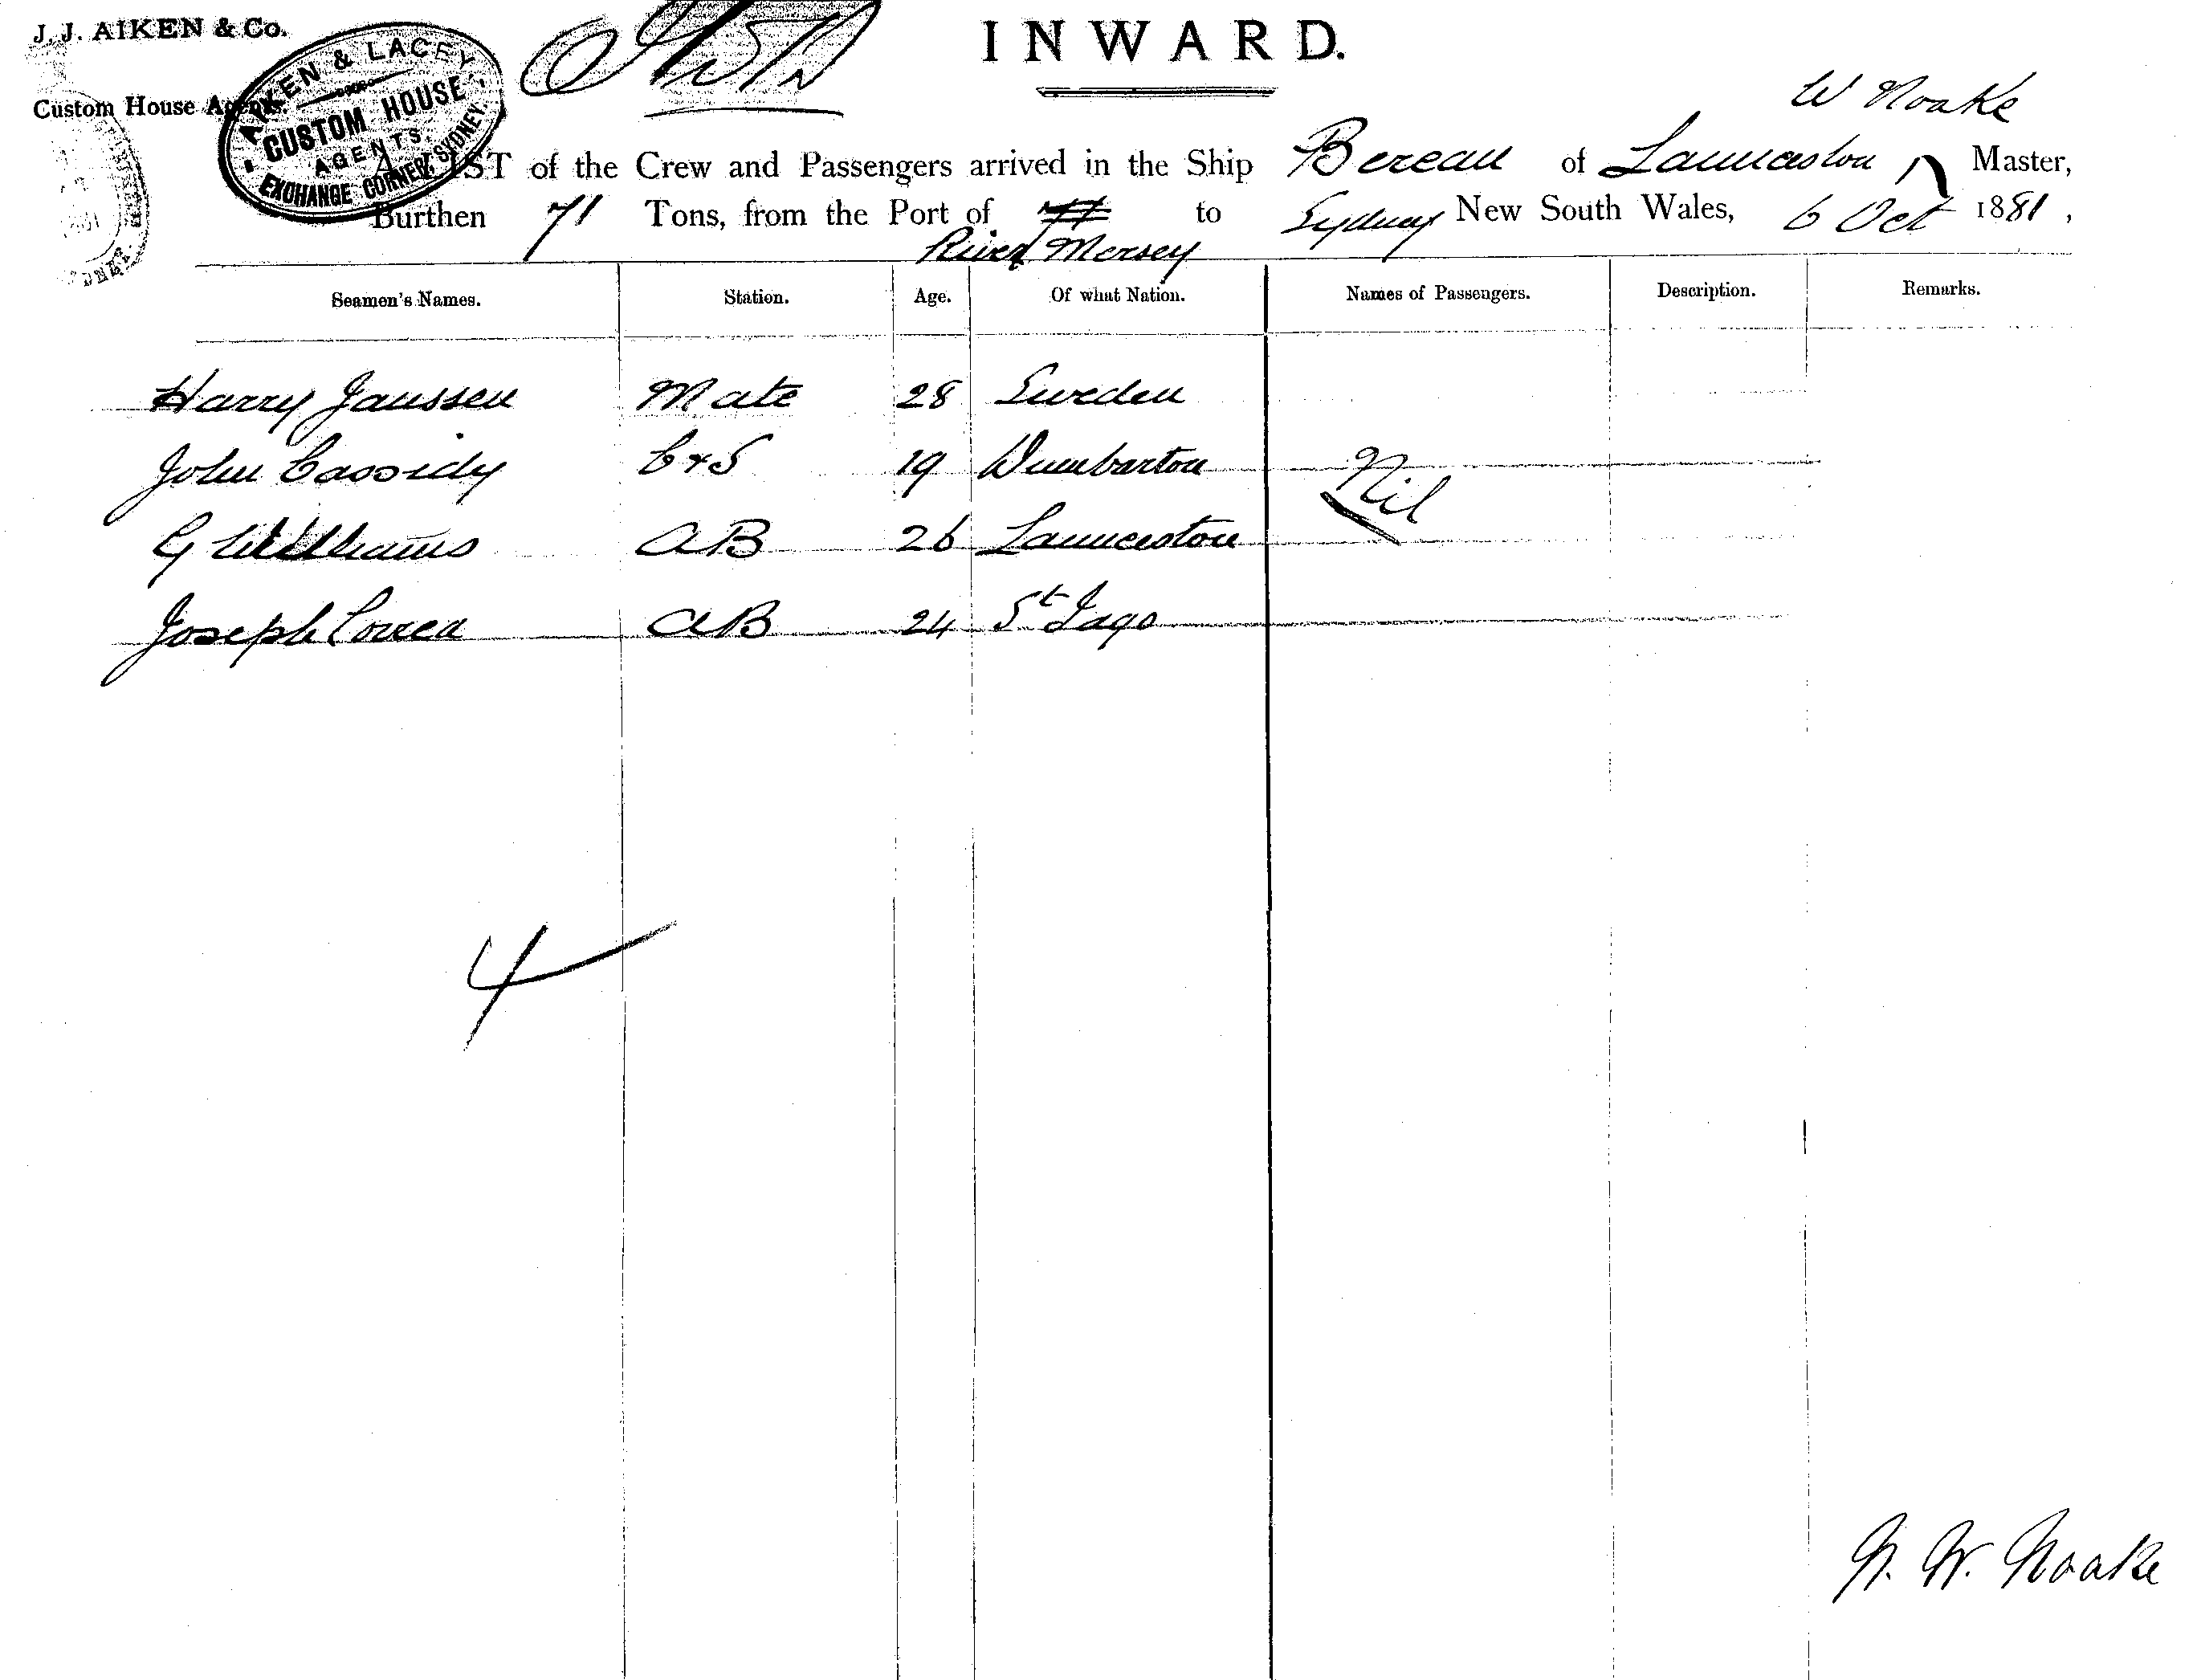 J. J. AIKEN & Co.
INWARD.
Custom House Agents.
AIKEN & LACEY,
CUSTOM HOUSE
AGENTS,
EXCHANGE CORNER, SYDNEY.
W Noake
A LIST of the Crew and Passengers arrived in the Ship Bereau of Launceston, Master,
Burthen 71 Tons, from the Port of to Sydney New South Wales, 6 Oct 1881,
River Mersey
Seamen's Names. Station. Age. Of what Nation. Names of Passengers. Description. Remarks.
Harry Janssen Mate 28 Sweden
John Cassidy C+S 19 Dumbarton Nil
G Williams AB 26 Launceston
Joseph Correa AB 24 St Jago
4
W. Noake